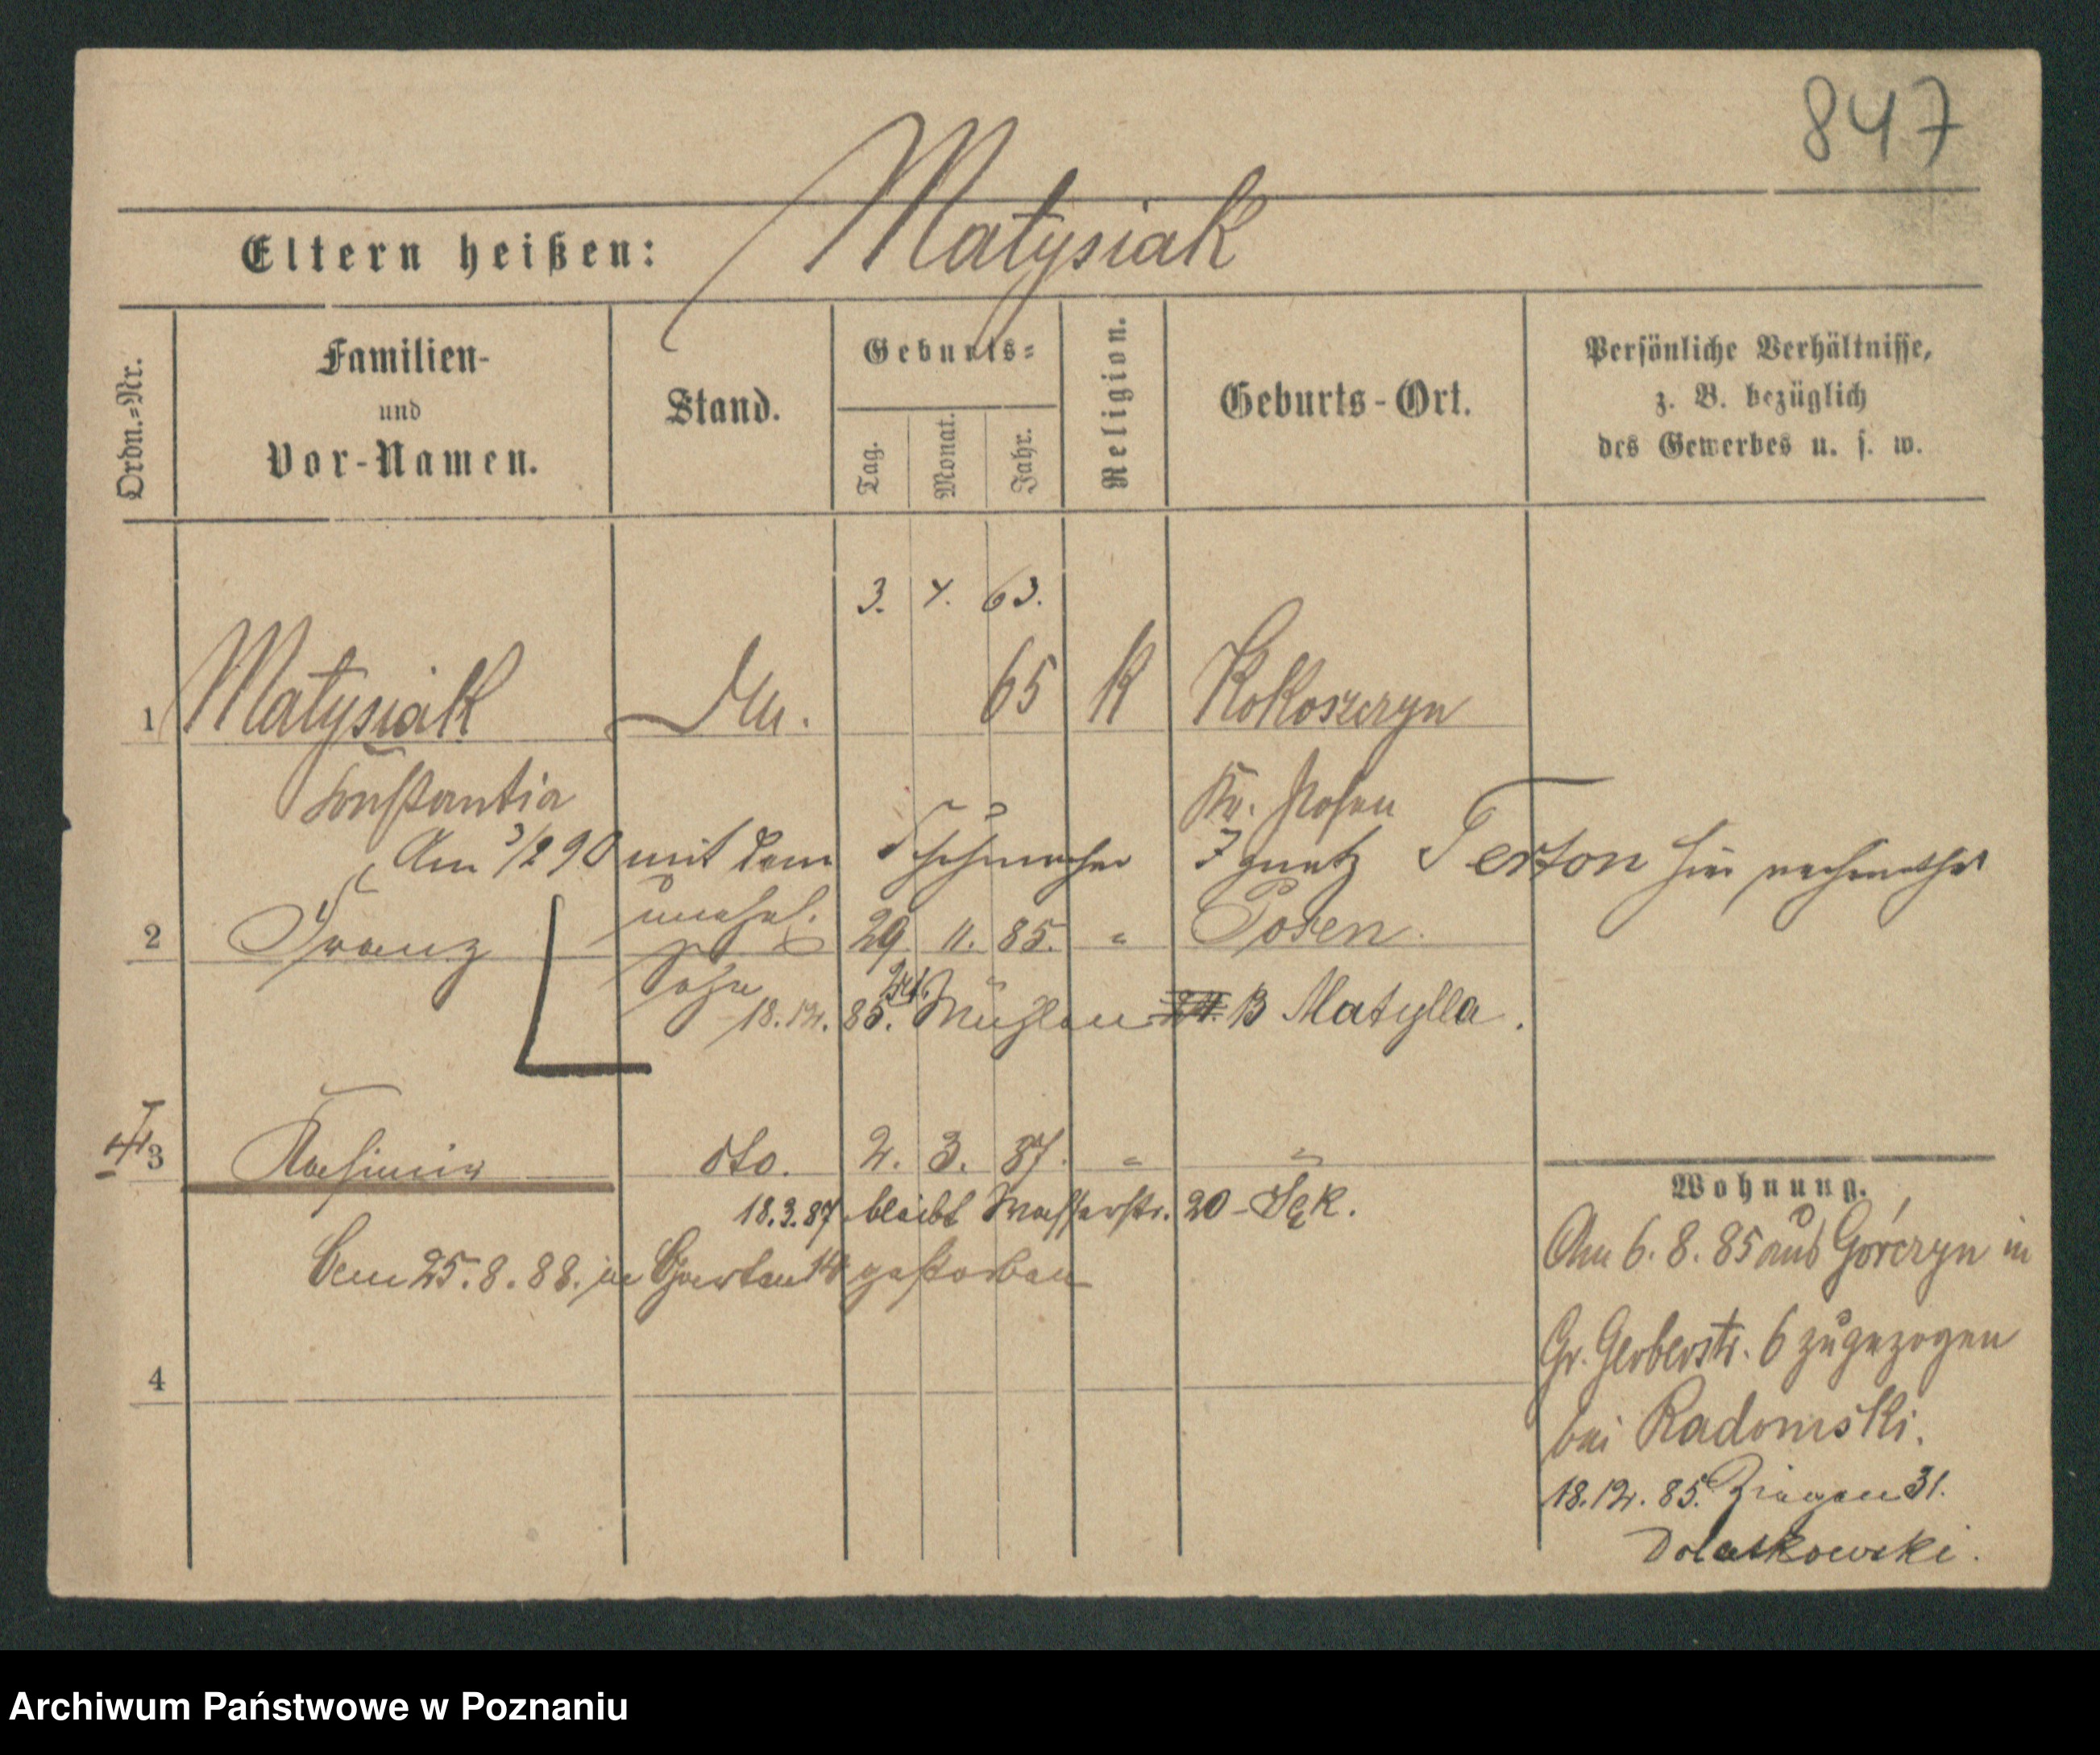 847
Eltern heißen: Matysiak
Ordn.=Nr.
Familien-
und
Vor-Namen.
Stand.
Geburts=
Tag.
Monat.
Jahr.
Religion.
Geburts-Ort.
Persönliche Verhältnisse,
z. B. bezüglich
des Gewerbes u. s. w.
3. 4. 63.
1 Matysiak 65 K Kokoszczyn
Konstantia Kr. Posen
Am 3/2 90 mit dem Schuhmacher Ignatz Terton hier verheirathet
unehel.
2 Franz 29 11. 85. " Posen.
Sohn
18.12. 85. Mühlen 13 Matylla.
3 Kasimir dto. 2. 3. 87. " "
18.3.87 bleibt Wasserstr. 20 - Sęk.
Den 25.8.88. in Garten 14 gestorben
4
Wohnung.
Am 6. 8. 85 aus Górczyn in
Gr. Gerberstr. 6 zugezogen
bei Radomski.
18.12. 85. Ziegen 31.
Dolatkowski.
Archiwum Państwowe w Poznaniu